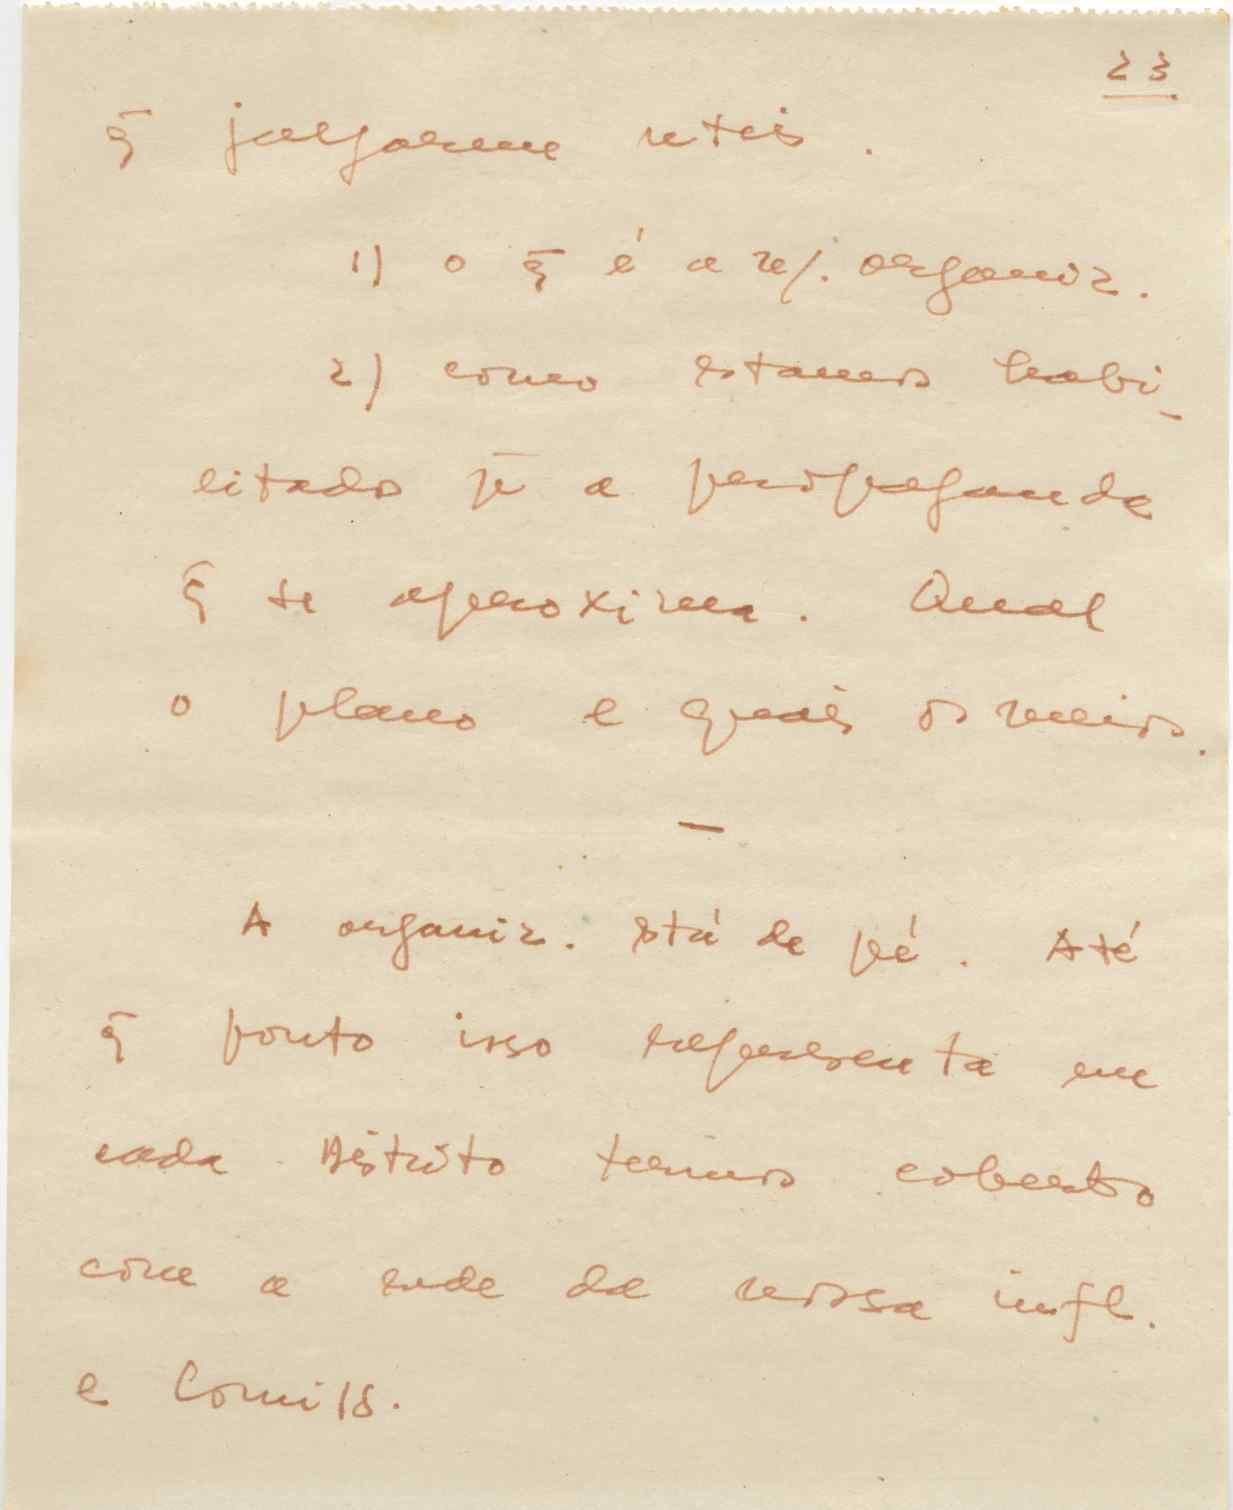 23
q̄ julgarem uteis.
1) o q̄ é a n/. organiz.
2) como estamos habi-
litados p̄ a propaganda
q̄ se aproxima. Qual
o plano e quais os meios.
—
A organiz. está de pé. Até
q̄ ponto isso representa em
cada Distrito termos coberto
com a rede da nossa infl.
e Comiss.